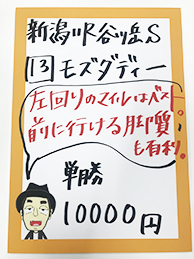 新潟11R谷川岳S
13モズダディー
左回りのマイルはベスト。
前に行ける脚質
も有利。
単勝
10000円